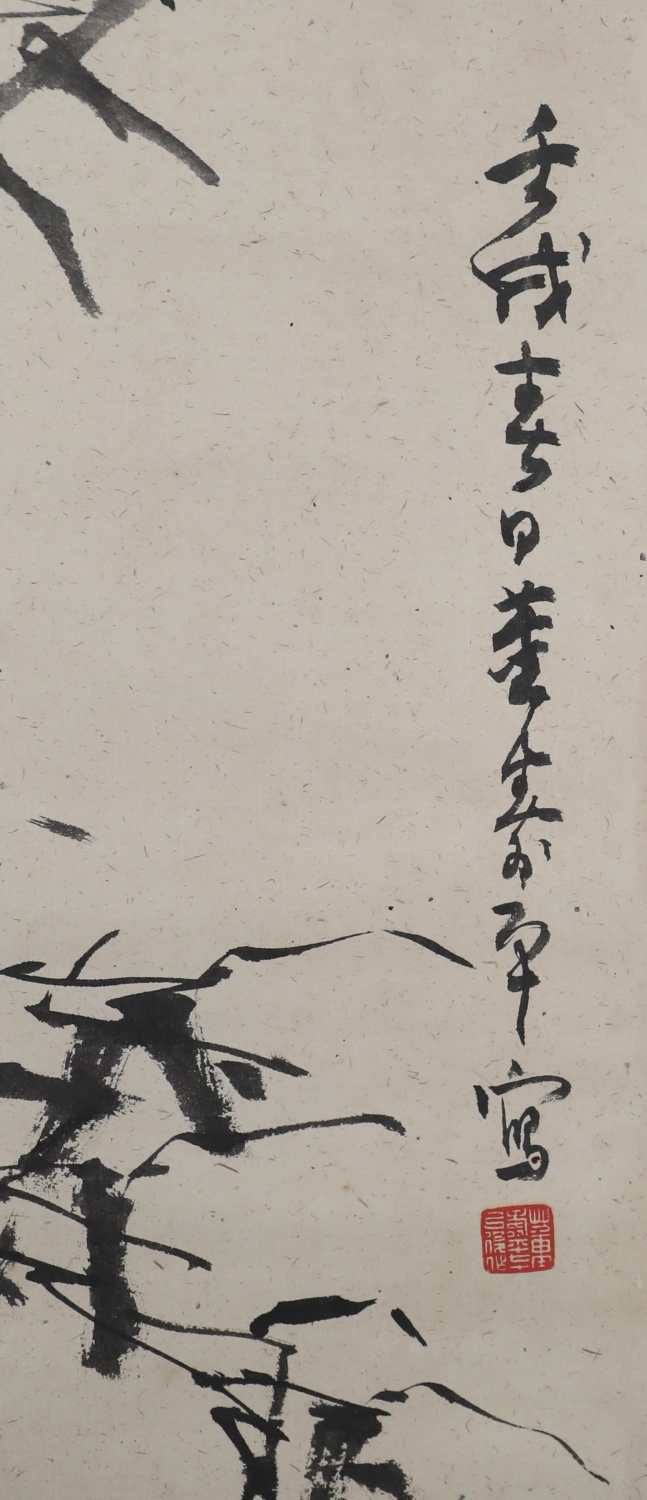 壬戌春日董壽平寫